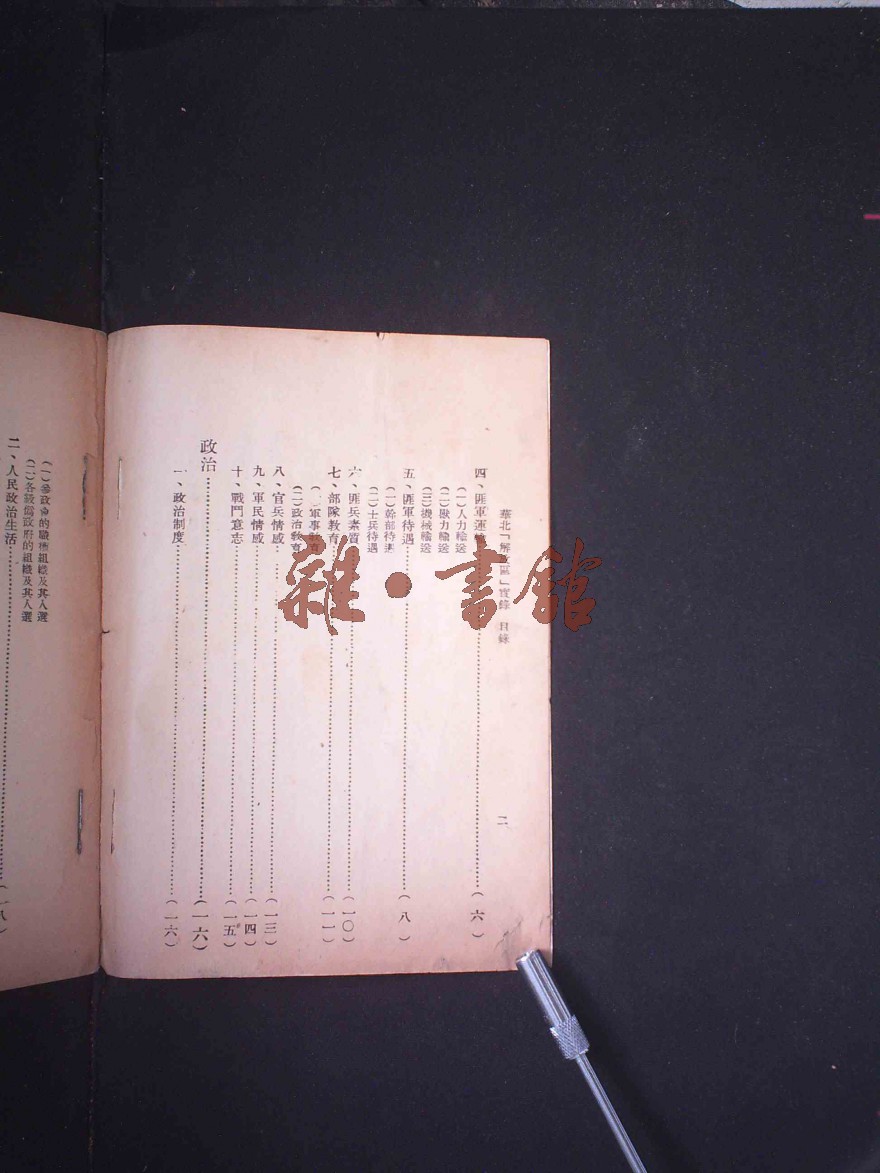 華北「解放區」實錄 目錄
二
四、匪軍運輸……(六)
(一)人力輸送
(二)獸力輸送
(三)機械輸送
五、匪軍待遇……(八)
(一)幹部待遇
(二)士兵待遇
六、匪兵素質……(一〇)
七、部隊教育……(一一)
(一)軍事教育
(二)政治教育
八、官兵情感……(一三)
九、軍民情感……(一四)
十、戰鬥意志……(一五)
政治……(一六)
一、政治制度……(一六)
(一)參政會的職權組織及其人選
(二)各級僞政府的組織及其人選
二、人民政治生活……(一八)
雜·書館